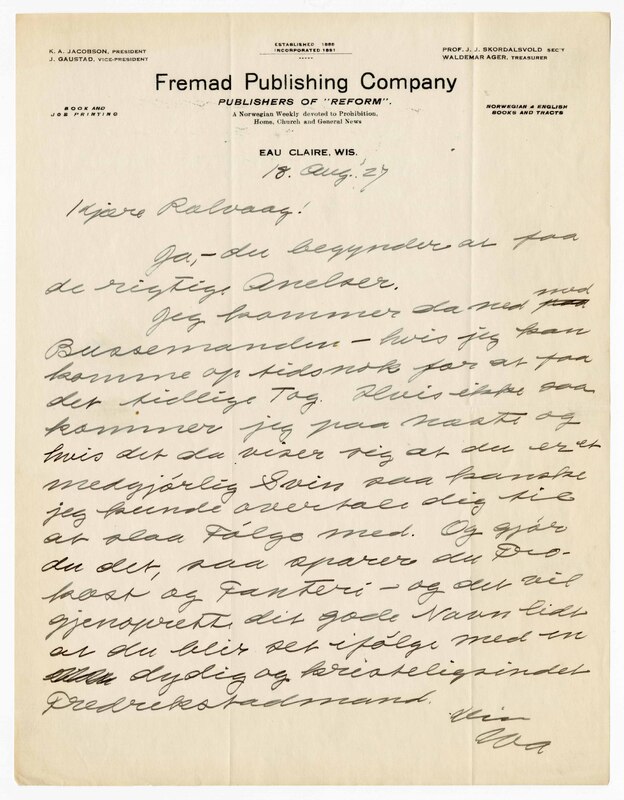 K. A. JACOBSON, PRESIDENT
J. GAUSTAD, VICE-PRESIDENT
ESTABLISHED 1886
INCORPORATED 1891
PROF. J. J. SKORDALSVOLD SEC'Y
WALDEMAR AGER, TREASURER
Fremad Publishing Company
PUBLISHERS OF "REFORM".
BOOK AND
JOB PRINTING
A Norwegian Weekly devoted to Prohibition,
Home, Church and General News
NORWEGIAN & ENGLISH
BOOKS AND TRACTS
EAU CLAIRE, WIS.
18. Aug.' 27
Kjære Rølvaag!
Ja, – du begynder at faa
de rigtige Anelser.
Jeg kommer da ned med
Bussemanden – hvis jeg kan
komme op tidsnok for at faa
det tidlige Tog. Hvis ikke saa
kommer jeg paa næste og
hvis det da viser sig at du er et
medgjørlig Svin saa kanske
jeg kunde overtale dig til
at slaa Følge med. Og gjør
du det, saa sparer du Fro-
kost og Fanteri – og det vil
gjenoprette dit gode Navn lidt
at du blir set ifølge med en
dydig og kristeligsindet
Fredrikstadmand.
Din
WA